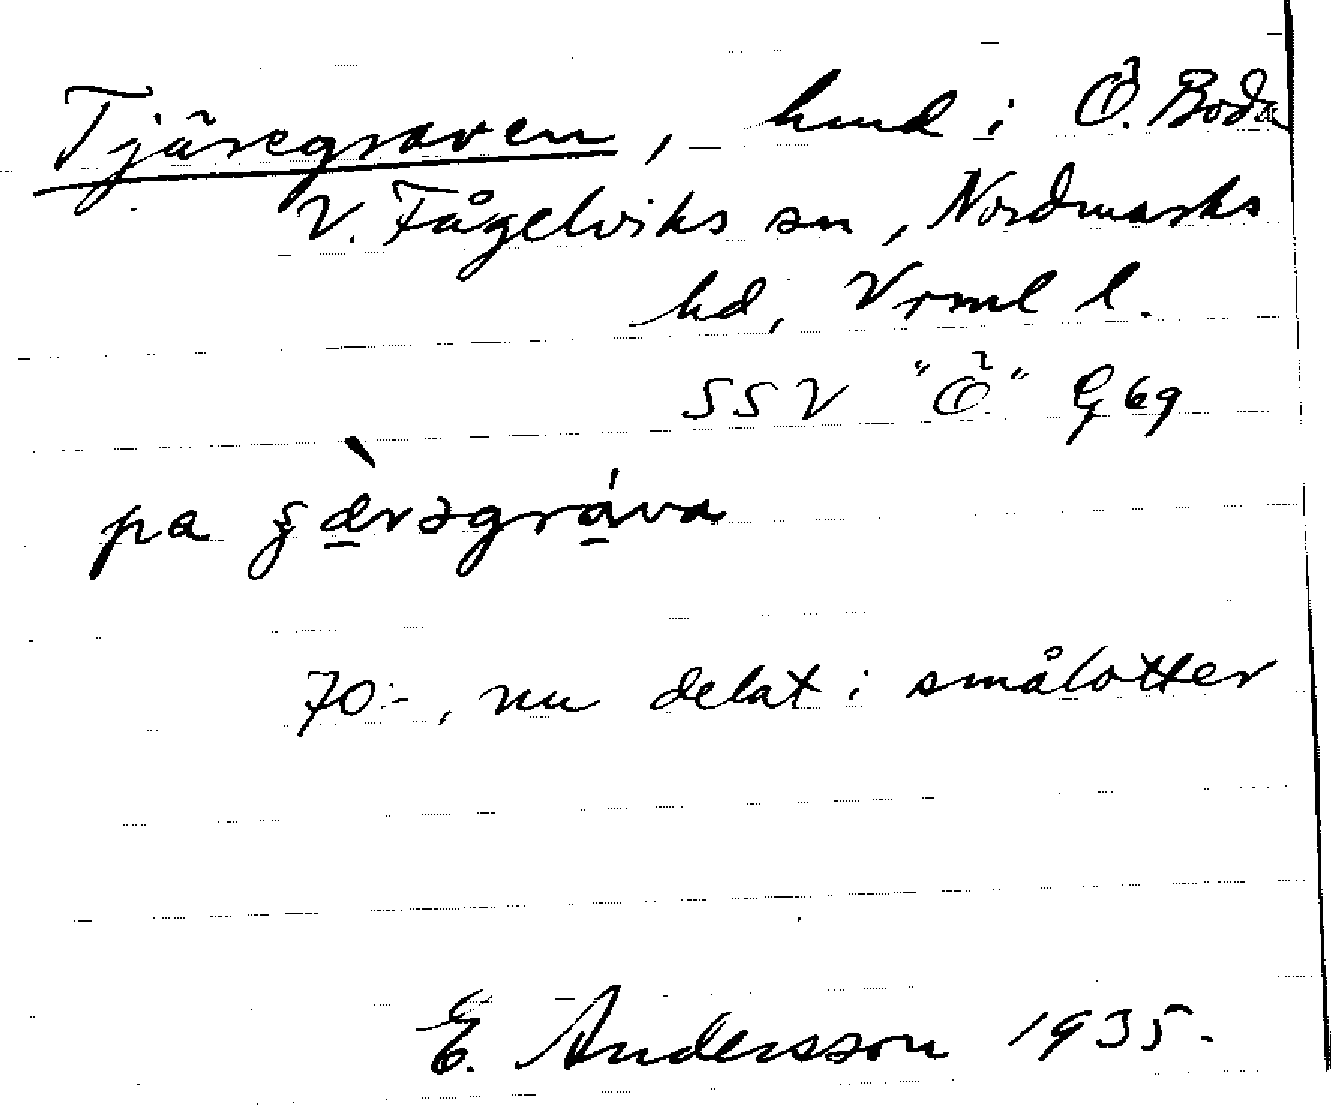 Tjäregraven, hmd i Ö. Boda
V. Fågelviks sn, Nordmarks
hd, Vrml l.
SSV "Ö" G 69
pa
70:-, nu delat i smålotter
E. Andersson 1935.